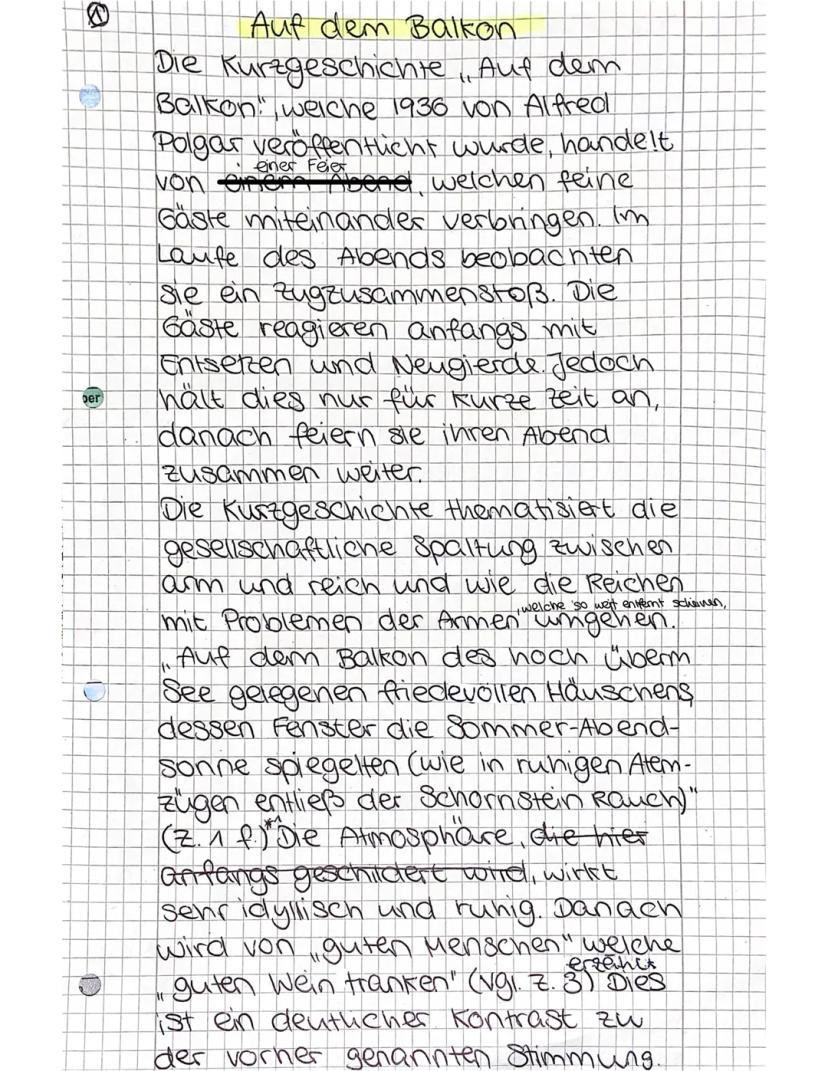 1
Auf dem Balkon
Die Kurzgeschichte „Auf dem
Balkon", welche 1936 von Alfred
Polgar veröffentlicht wurde, handelt
einer Feier
von einem Abend, welchen feine
Gäste miteinander verbringen. Im
Laufe des Abends beobachten
sie ein Zugzusammenstoß. Die
Gäste reagieren anfangs mit
Entsetzen und Neugierde. Jedoch
hält dies nur für kurze Zeit an,
danach feiern sie ihren Abend
zusammen weiter.
Die Kurzgeschichte thematisiert die
gesellschaftliche Spaltung zwischen
arm und reich und wie die Reichen
, welche so weit entfernt scheinen,
mit Problemen der Armen umgehen.
„Auf dem Balkon des hoch überm
See gelegenen friedevollen Häuschens
dessen Fenster die Sommer-Abend-
sonne spiegelten (wie in ruhigen Atem-
zügen entließ der Schornstein Rauch)"
(Z. 1 f.)*1 Die Atmosphäre, die hier
anfangs geschildert wird, wirkt
sehr idyllisch und ruhig. Danach
wird von „guten Menschen" welche
erzählt
„guten Wein tranken" (vgl. Z. 3) Dies
ist ein deutlicher Kontrast zu
der vorher genannten Stimmung.
per